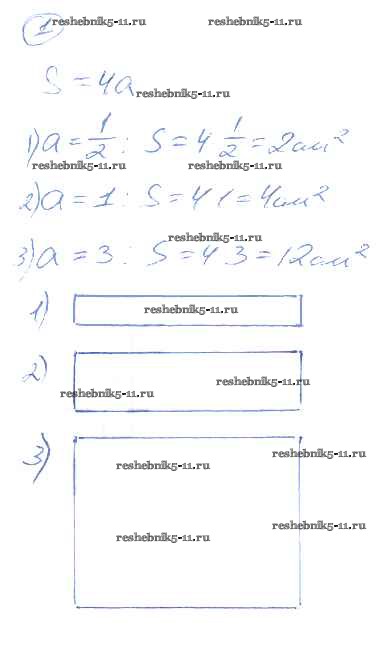 1 reshebnik5-11.ru
S = 4a
reshebnik5-11.ru
1) a = 1/2 : S = 4 1/2 = 2 см²
reshebnik5-11.ru reshebnik5-11.ru
2) a = 1 : S = 4 1 = 4 см²
reshebnik5-11.ru
3) a = 3 : S = 4 3 = 12 см²
1) reshebnik5-11.ru
2) reshebnik5-11.ru
reshebnik5-11.ru
3) reshebnik5-11.ru
reshebnik5-11.ru
reshebnik5-11.ru
reshebnik5-11.ru